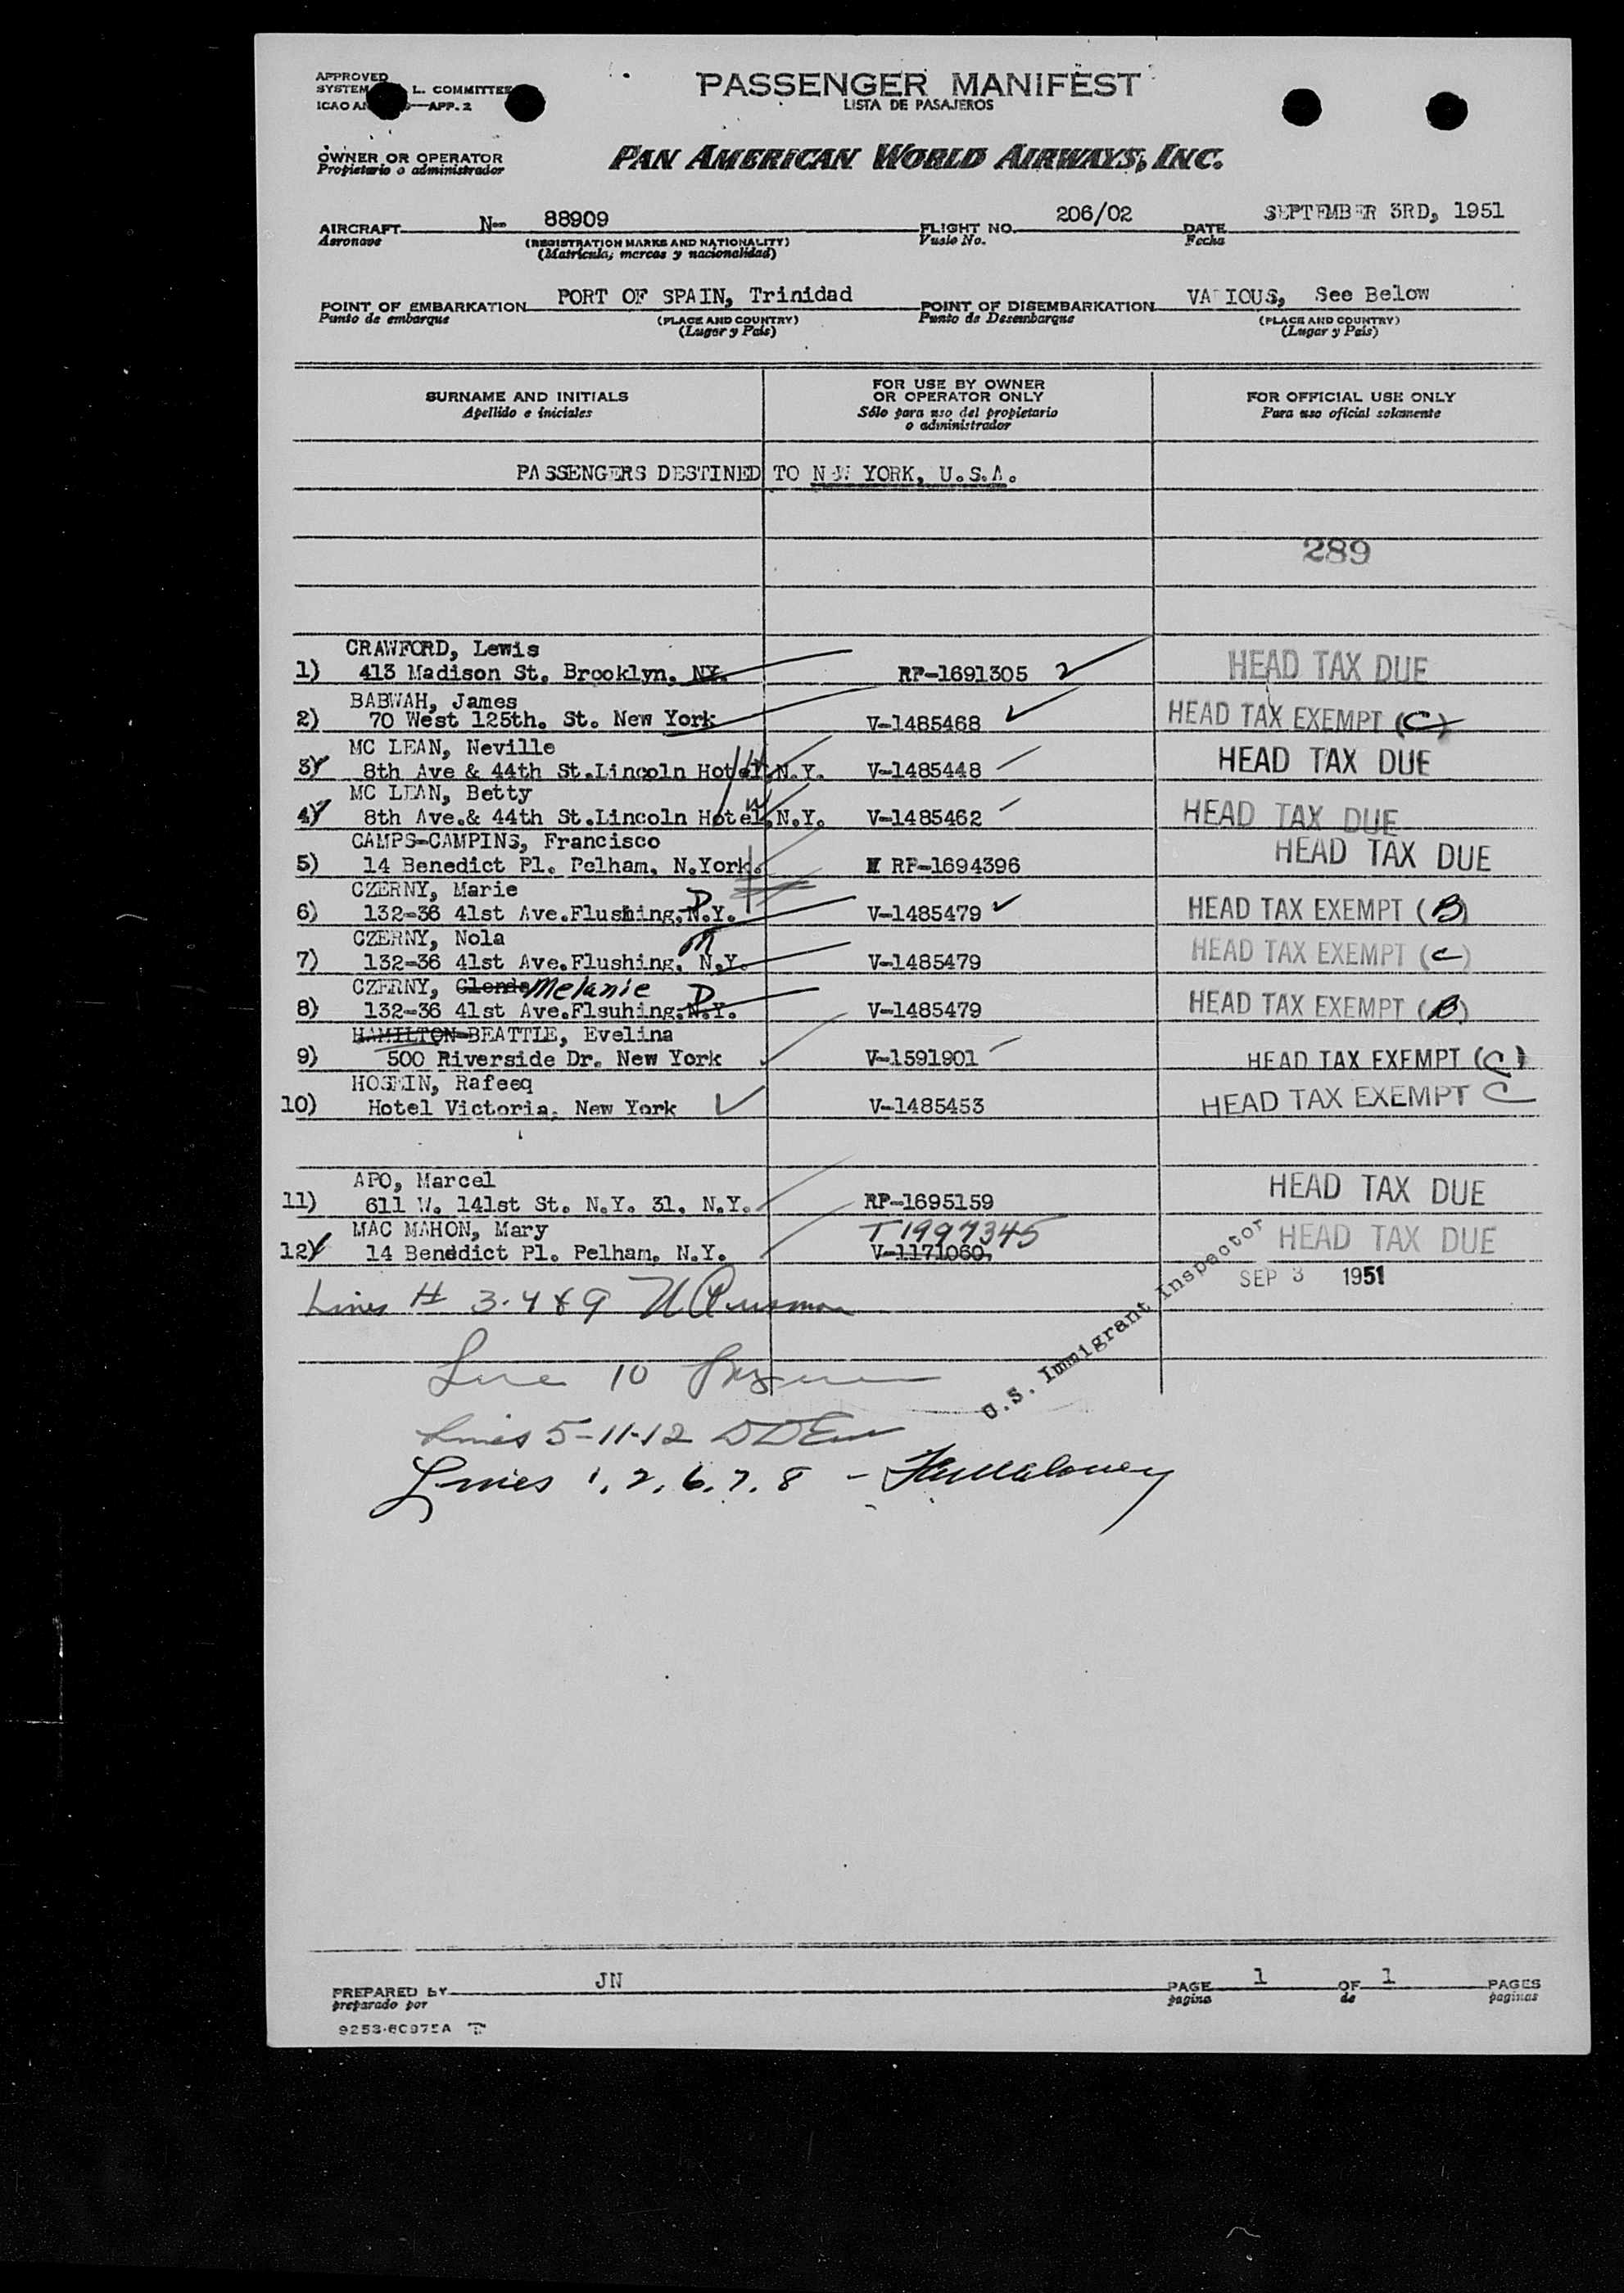 APPROVED
SYSTEM L. COMMITTEE
ICAO AN —APP. 2
PASSENGER MANIFEST
LISTA DE PASAJEROS
OWNER OR OPERATOR
Propietario o administrador
PAN AMERICAN WORLD AIRWAYS, INC.
AIRCRAFT N- 88909 FLIGHT NO. 206/02 DATE SEPTEMBER 3RD, 1951
Aeronave (REGISTRATION MARKS AND NATIONALITY) Vuelo No. Fecha
(Matrícula, marcas y nacionalidad)
POINT OF EMBARKATION PORT OF SPAIN, Trinidad POINT OF DISEMBARKATION VARIOUS, See Below
Punto de embarque (PLACE AND COUNTRY) Punto de Desembarque (PLACE AND COUNTRY)
(Lugar y País) (Lugar y País)
SURNAME AND INITIALS FOR USE BY OWNER OR OPERATOR ONLY FOR OFFICIAL USE ONLY
Apellido e iniciales Sólo para uso del propietario o administrador Para uso oficial solamente
PASSENGERS DESTINED TO NEW YORK, U.S.A.
289
CRAWFORD, Lewis
1) 413 Madison St. Brooklyn, NY. RP-1691305 HEAD TAX DUE
BABWAH, James
2) 70 West 125th. St. New York V-1485468 HEAD TAX EXEMPT (C)
MC LEAN, Neville
3) 8th Ave & 44th St.Lincoln Hotel,N.Y. V-1485448 HEAD TAX DUE
MC LEAN, Betty
4) 8th Ave.& 44th St.Lincoln Hotel,N.Y. V-1485462 HEAD TAX DUE
CAMPS-CAMPINS, Francisco
5) 14 Benedict Pl. Pelham, N.York. RP-1694396 HEAD TAX DUE
CZERNY, Marie
6) 132-36 41st Ave.Flushing,N.Y. V-1485479 HEAD TAX EXEMPT (B)
CZERNY, Nola
7) 132-36 41st Ave.Flushing, N.Y. V-1485479 HEAD TAX EXEMPT (C)
CZERNY, Glenda Melanie
8) 132-36 41st Ave.Flsuhing,N.Y. V-1485479 HEAD TAX EXEMPT (B)
HAMILTON-BEATTLE, Evelina
9) 500 Riverside Dr. New York V-1591901 HEAD TAX EXEMPT (C)
HOSEIN, Rafeeq
10) Hotel Victoria, New York V-1485453 HEAD TAX EXEMPT C
APO, Marcel
11) 611 W. 141st St. N.Y. 31, N.Y. RP-1695159 HEAD TAX DUE
MAC MAHON, Mary T1997345
12) 14 Benedict Pl. Pelham, N.Y. V-1171060, HEAD TAX DUE
SEP 3 1951
U.S. Immigrant Inspector
Lines # 3-4 & 9
Line 10
Lines 5-11-12
Lines 1, 2, 6, 7, 8 -
PREPARED BY JN PAGE 1 OF 1 PAGES
preparado por pagina de paginas
9253-6C975A